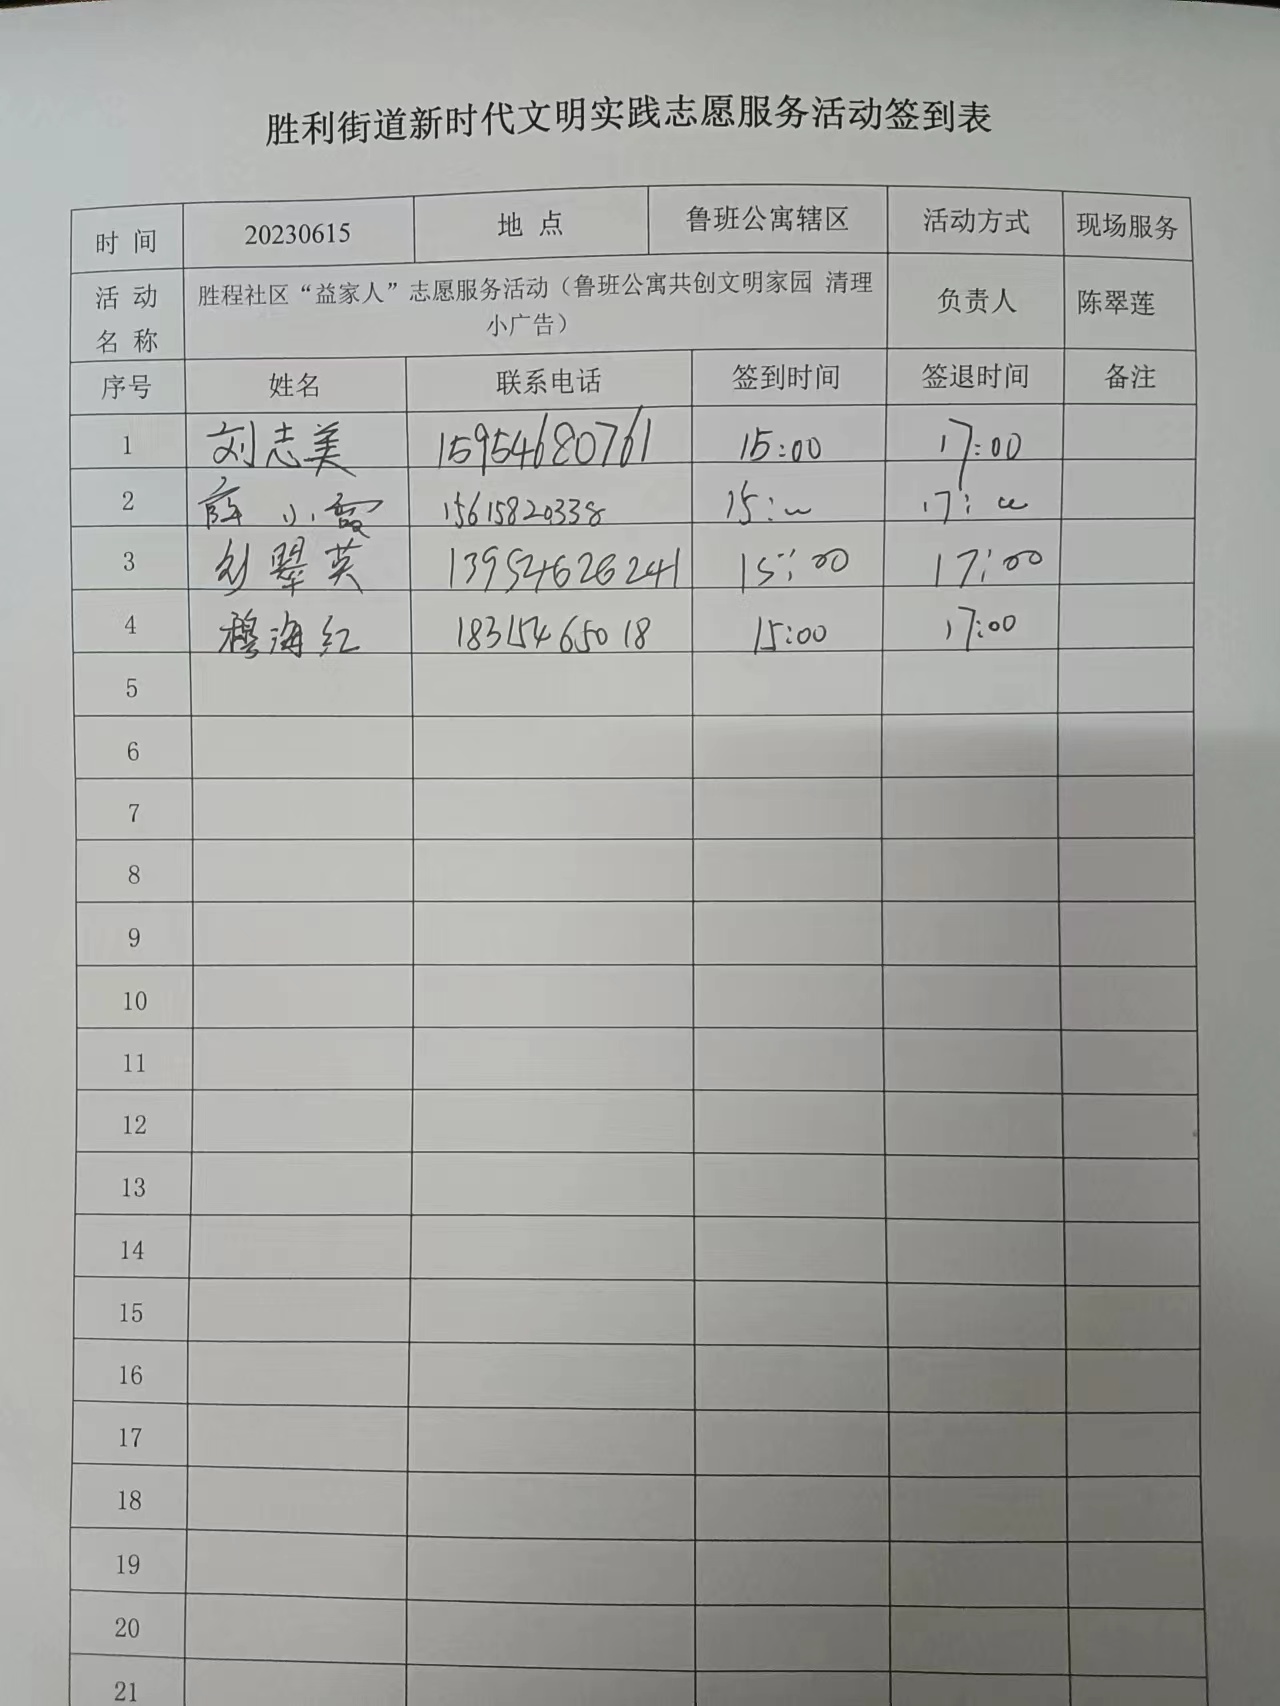 胜利街道新时代文明实践志愿服务活动签到表
时 间 20230615 地 点 鲁班公寓辖区 活动方式 现场服务
活 动 名 称 胜程社区“益家人”志愿服务活动（鲁班公寓共创文明家园 清理
小广告） 负责人 陈翠莲
序号 姓名 联系电话 签到时间 签退时间 备注
1 刘志美 15954680761 15:00 17:00
2 薛小霞 15615820338 15: 17:
3 翠英 13954626241 15:00 17:00
4 穆海红 18315465018 15:00 17:00
5
6
7
8
9
10
11
12
13
14
15
16
17
18
19
20
21